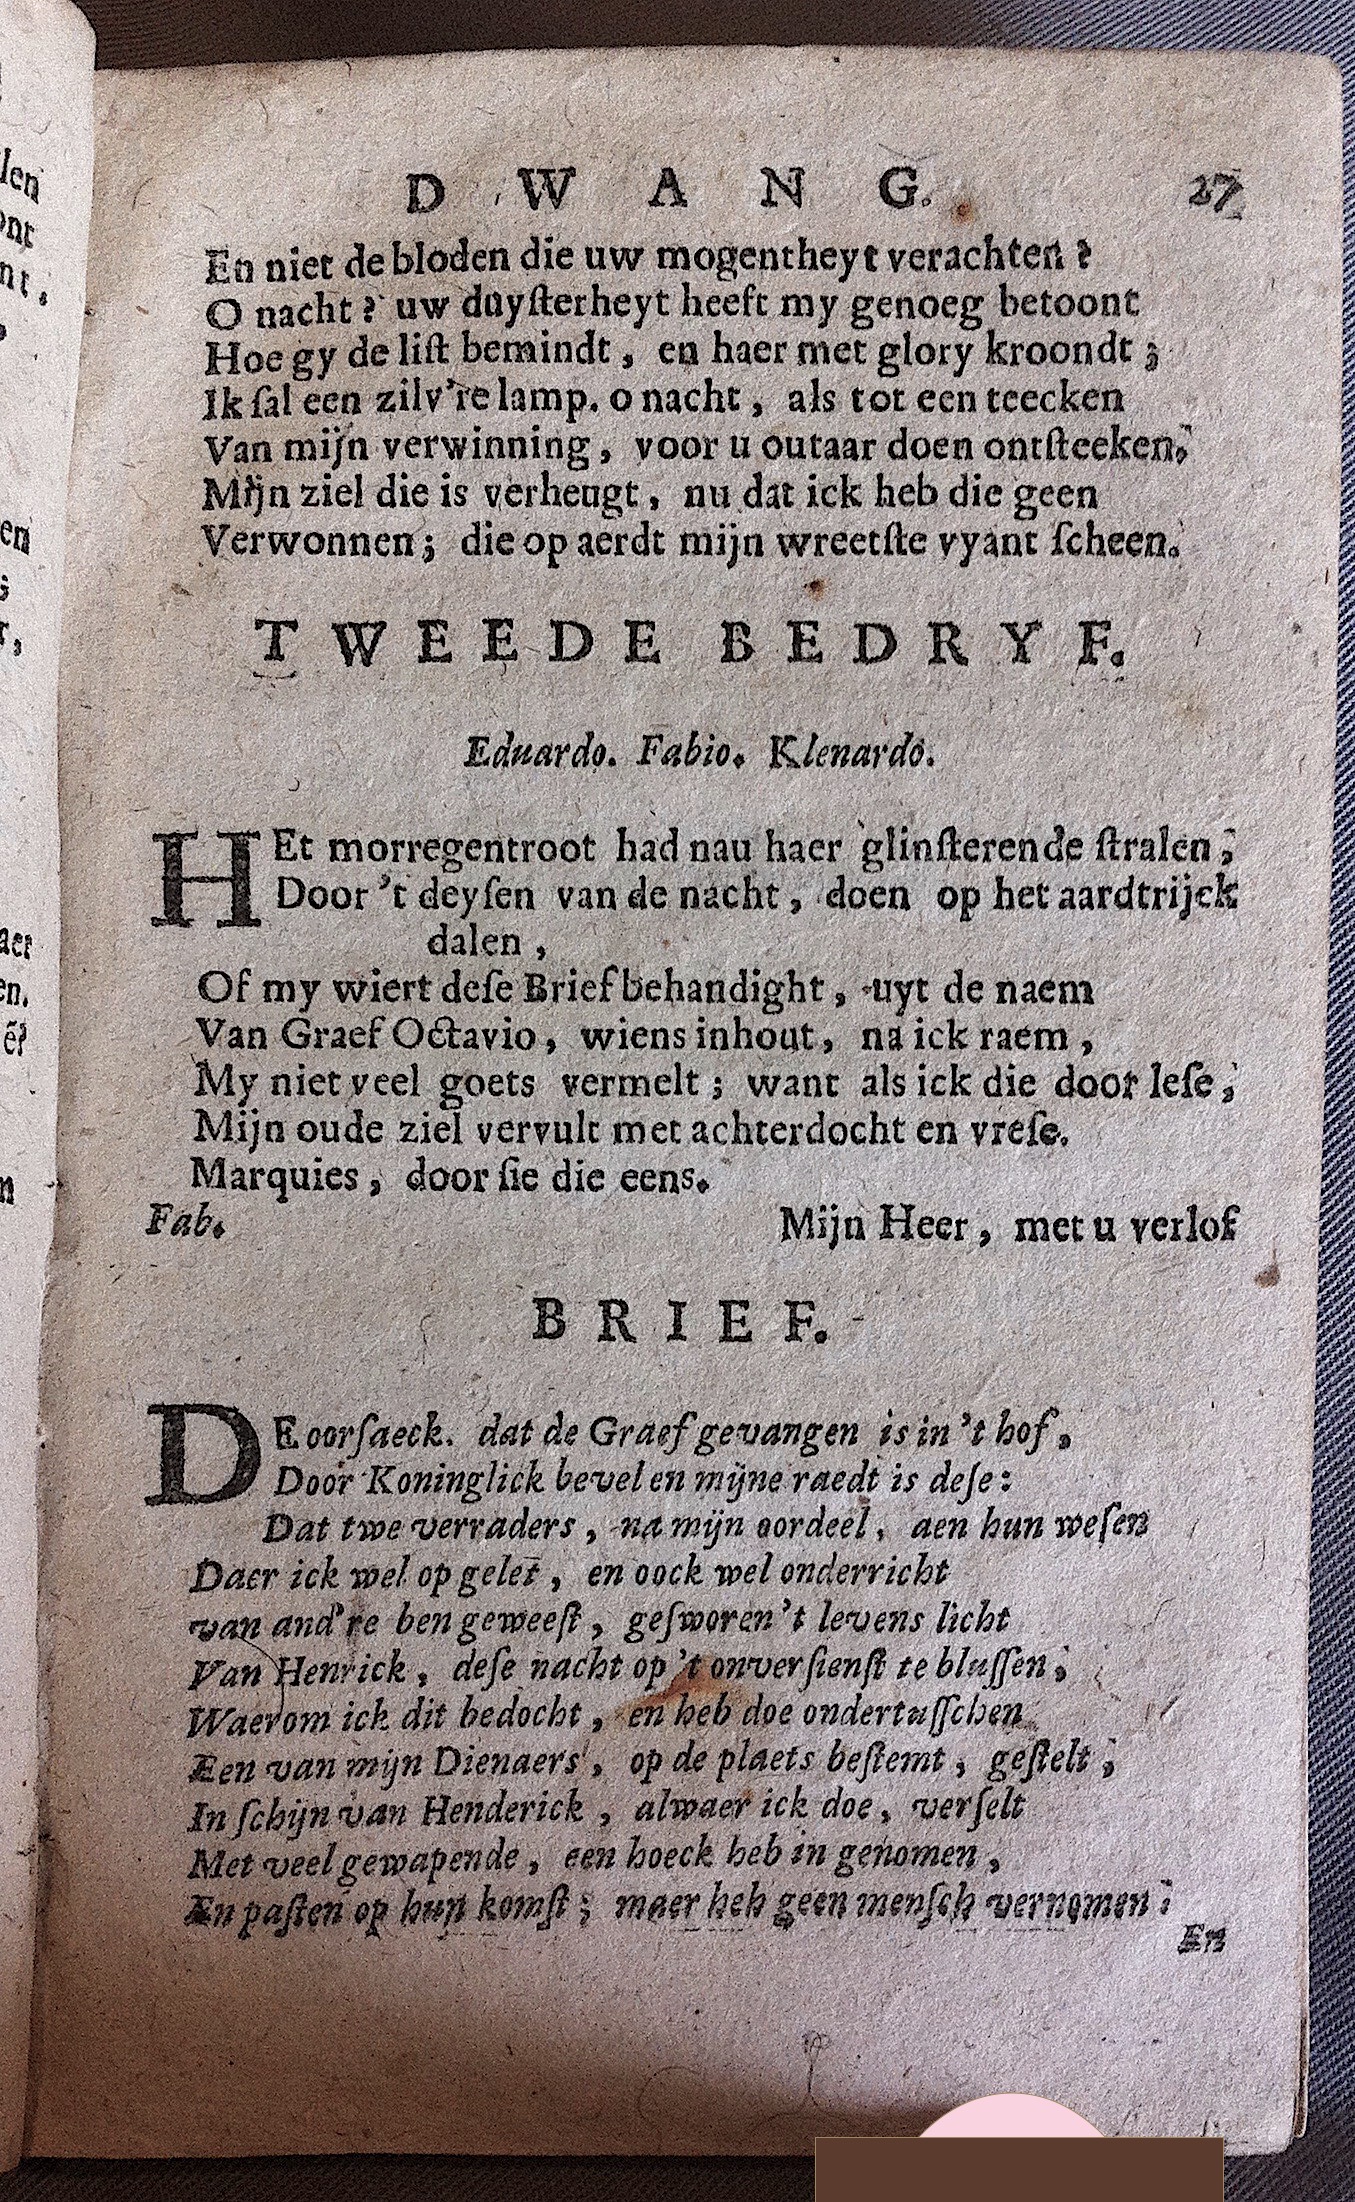 D W A N G. 27
En niet de bloden die uw mogentheyt verachten?
O nacht? uw duyſterheyt heeft my genoeg betoont
Hoe gy de liſt bemindt, en haer met glory kroondt;
Ik ſal een zilv're lamp. o nacht, als tot een teecken
Van mijn verwinning, voor u outaar doen ontſteeken.
Mijn ziel die is verheugt, nu dat ick heb die geen
Verwonnen; die op aerdt mijn wreetſte vyant ſcheen.
TWEEDE BEDRYF.
Eduardo. Fabio. Klenardo.
HEt morregentroot had nau haer glinſterende ſtralen,
Door 't deyſen van de nacht, doen op het aardtrijck
dalen,
Of my wiert deſe Brief behandight, uyt de naem
Van Graef Octavio, wiens inhout, na ick raem,
My niet veel goets vermelt; want als ick die door leſe,
Mijn oude ziel vervult met achterdocht en vreſe.
Marquies, door ſie die eens.
Fab. Mijn Heer, met u verlof
BRIEF.
DE oorſaeck. dat de Graef gevangen is in 't hof,
Door Koninglick bevel en mijne raedt is deſe:
Dat twe verraders, na mijn oordeel, aen hun weſen
Daer ick wel op gelet, en oock wel onderricht
van and're ben geweeſt, geſworen 't levens licht
Van Henrick, deſe nacht op 't onverſienſt te bluſſen,
Waerom ick dit bedocht, en heb doe ondertuſſchen
Een van mijn Dienaers, op de plaets beſtemt, geſtelt,
In ſchijn van Henderick, alwaer ick doe, verſelt
Met veel gewapende, een hoeck heb in genomen,
En paſten op hun komſt; maer heb geen menſch vernomen:
En